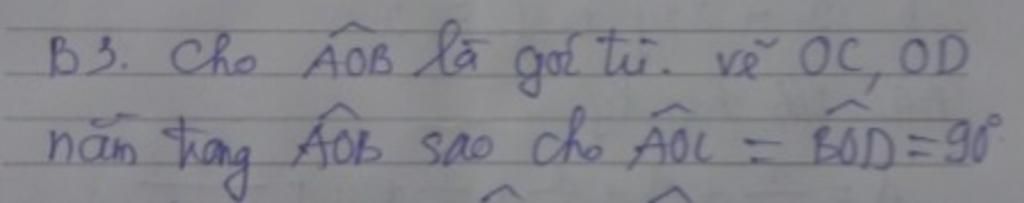 B3. Cho AOB là goí tù. vẽ OC, OD
nằm trong AOB sao cho AOC = BOD = 90°